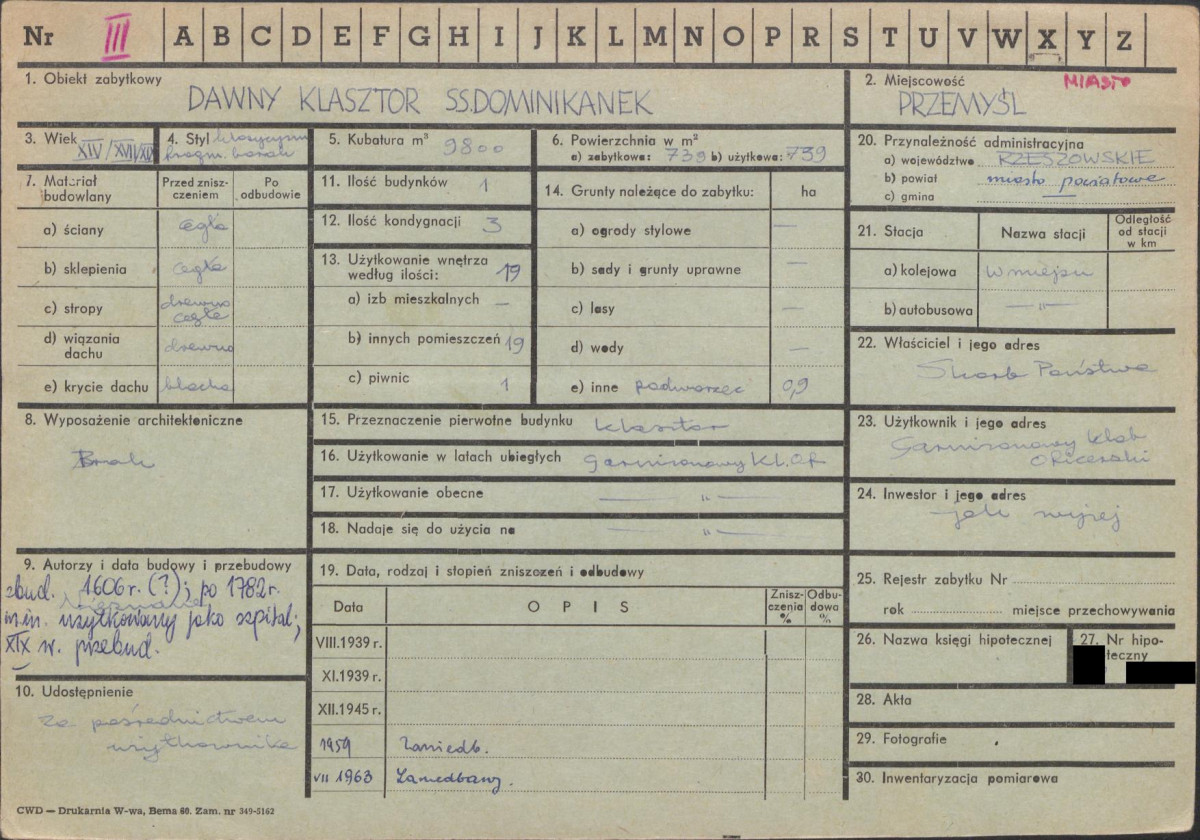 Nr III A B C D E F G H I J K L M N O P R S T U V W X Y Z
1. Obiekt zabytkowy
DAWNY KLASZTOR SS.DOMINIKANEK
2. Miejscowość MIASTO
PRZEMYŚL
3. Wiek
XIV/XVII/XIX
4. Styl klasycyzm
fragm. barok
5. Kubatura m³ 9800
6. Powierzchnia w m²
a) zabytkowa: 739 b) użytkowa: 739
7. Materiał budowlany
Przed zniszczeniem
Po odbudowie
a) ściany cegła
b) sklepienia cegła
c) stropy drewno
cegła
d) wiązania dachu drewno
e) krycie dachu blacha
8. Wyposażenie architektoniczne
Brak
9. Autorzy i data budowy i przebudowy
zbud. 1606 r. (?); po 1782 r.
Nieznane
m.in. użytkowany jako szpital;
XIX w. przebud.
10. Udostępnienie
Za pośrednictwem
użytkownika
11. Ilość budynków 1
12. Ilość kondygnacji 3
13. Użytkowanie wnętrza
według ilości: 19
a) izb mieszkalnych —
b) innych pomieszczeń 19
c) piwnic 1
14. Grunty należące do zabytku: ha
a) ogrody stylowe —
b) sady i grunty uprawne —
c) lasy —
d) wody —
e) inne podworzec 0,9
15. Przeznaczenie pierwotne budynku klasztor
16. Użytkowanie w latach ubiegłych garnizonowy KL.OF
17. Użytkowanie obecne — " —
18. Nadaje się do użycia na — " —
19. Data, rodzaj i stopień zniszczeń i odbudowy
Data OPIS Zniszczenia % Odbudowa %
VIII.1939 r.
XI.1939 r.
XII.1945 r.
1959 Zaniedb.
VII 1963 Zaniedbany.
20. Przynależność administracyjna
a) województwo RZESZOWSKIE
b) powiat miasto powiatowe
c) gmina —
21. Stacja Nazwa stacji Odległość od stacji w km
a) kolejowa w miejscu
b) autobusowa — " —
22. Właściciel i jego adres
Skarb Państwa
23. Użytkownik i jego adres
Garnizonowy Klub
Oficerski
24. Inwestor i jego adres
jak wyżej
25. Rejestr zabytku Nr
rok miejsce przechowywania
26. Nazwa księgi hipotecznej
27. Nr hipo-
teczny
28. Akta
29. Fotografie
30. Inwentaryzacja pomiarowa
CWD — Drukarnia W-wa, Bema 60. Zam. nr 349-5162